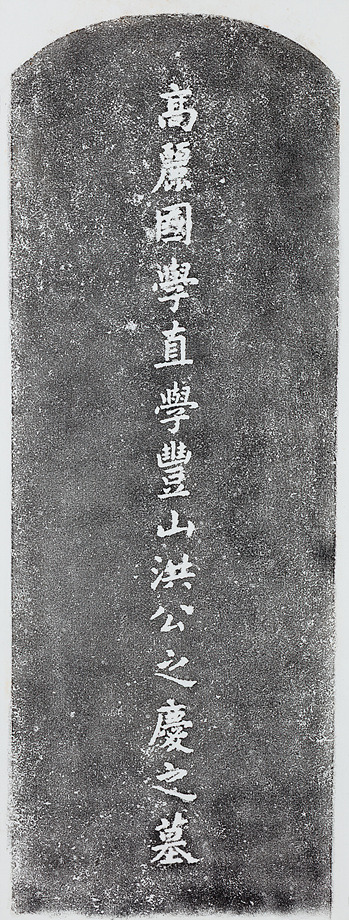 高麗國學直學豐山洪公之慶之墓